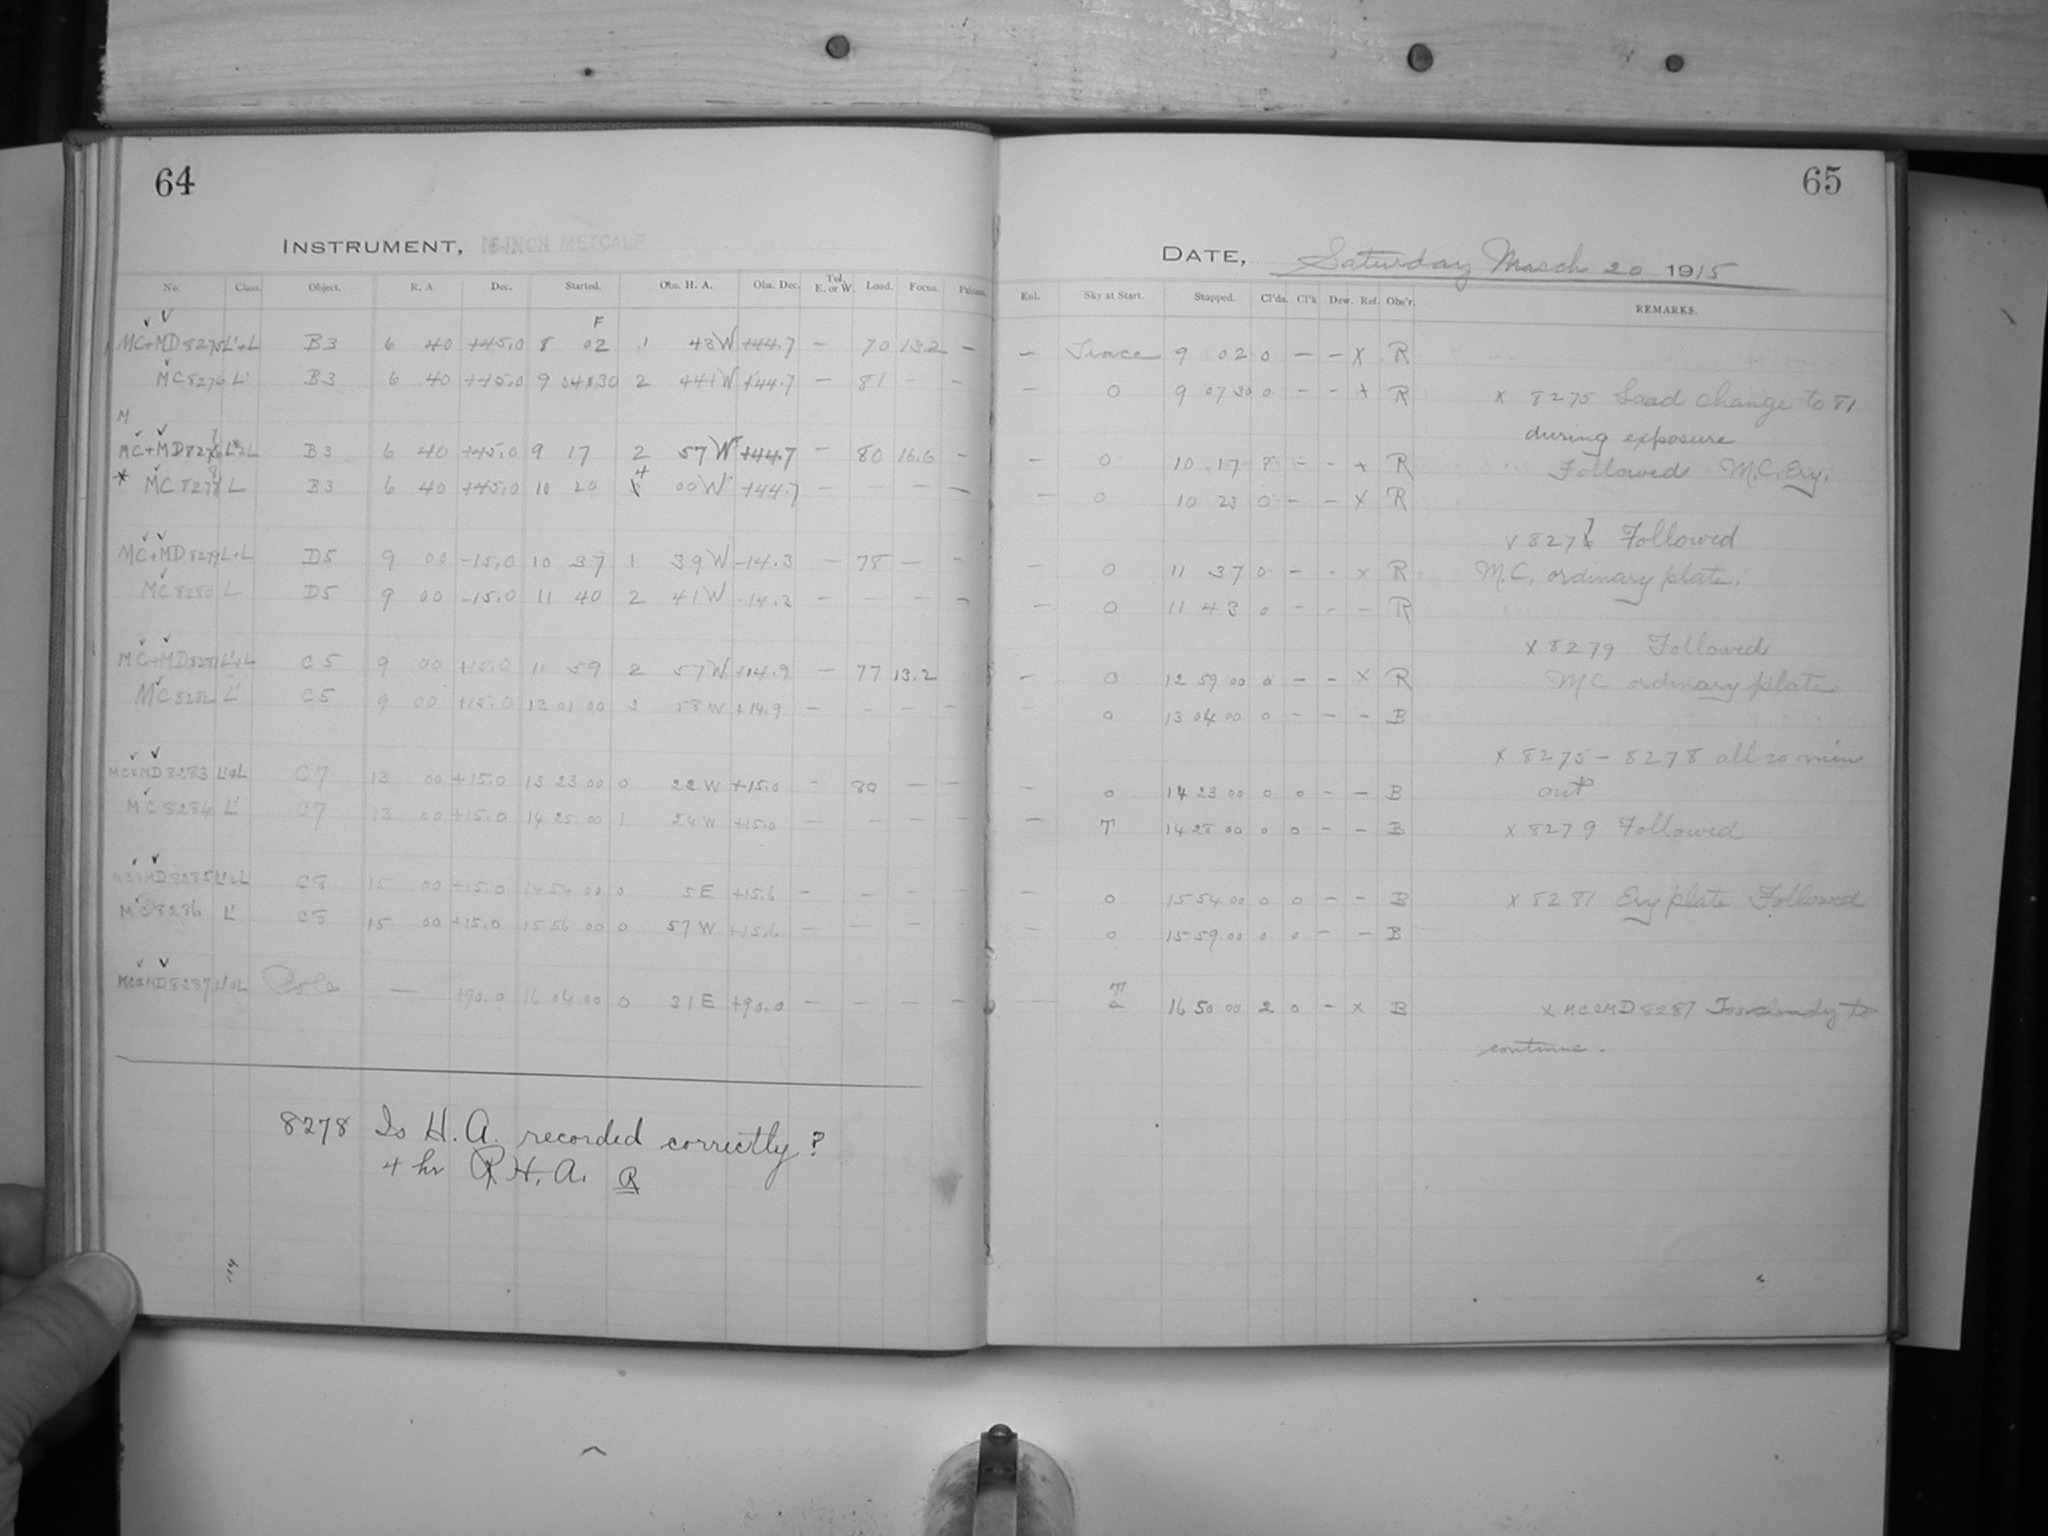 64
INSTRUMENT, 16-INCH METCALF
No. Class. Object. R. A. Dec. Started. Obs. H. A. Obs. Dec. Tel. E. or W. Load. Focus. Prisms.
F
MC+MD8275 L'+L B3 6 40 +45.0 8 02 1 43W +44.7 — 70 13.2 —
MC8276 L' B3 6 40 +45.0 9 04 30 2 44 W +44.7 — 81 — —
M
MC+MD8277 L'+L B3 6 40 +45.0 9 17 2 57W +44.7 — 80 16.6 —
* MC8278 L B3 6 40 +45.0 10 20 4 00W +44.7 — — — —
MC+MD8279 L+L D5 9 00 -15.0 10 37 1 39W -14.3 — 78 — —
MC8280 L D5 9 00 -15.0 11 40 2 41W -14.3 — — — —
MC+MD8281 L'+L C5 9 00 +15.0 11 59 2 57W +14.9 — 77 13.2
MC8282 L' C5 9 00 +15.0 13 01 00 3 58W +14.9 — — — —
MC&MD8283 L'&L C7 13 00 +15.0 13 23 00 0 22W +15.0 — 80 — —
MC8284 L' C7 13 00 +15.0 14 25 00 1 24W +15.0 — — — —
MC&MD8285 L'&L C8 15 00 +15.0 14 54 00 0 5E +15.6 — — — —
MC8286 L' C8 15 00 +15.0 15 56 00 0 57W +15.6 — — — —
MC&MD8287 L'&L Pole — +90.0 16 04 00 0 31E +90.0 — — — —
8278 Is H. A. recorded correctly?
4 hr R H. A. R
65
DATE, Saturday March 20 1915
Enl. Sky at Start. Stopped. Cl'ds. Cl'k Dew. Ref. Obs'r. REMARKS.
— Trace 9 02 0 — — x R
— 0 9 07 30 0 — — x R
x 8275 Load change to 81
during exposure
— 0 10 17 ? — — x R
Followed M.C. Ery.
— 0 10 23 0 — — x R
x 8277 Followed
M.C. ordinary plate.
— 0 11 37 0 — - x R
— 0 11 43 0 — - — R
x 8279 Followed
MC ordinary plate
— 0 12 59 00 0 — — x R
— 0 13 04 00 0 — — — B
x 8275 – 8278 all 20 min
out
— 0 14 23 00 0 0 — — B
— T 14 28 00 0 0 — — B
x 8279 Followed
— 0 15 54 00 0 0 — — B
x 8281 Ery plate Followed
— 0 15 59 00 0 0 — — B
— T 16 50 00 2 0 — x B
x MC&MD8287 Too cloudy to
continue.